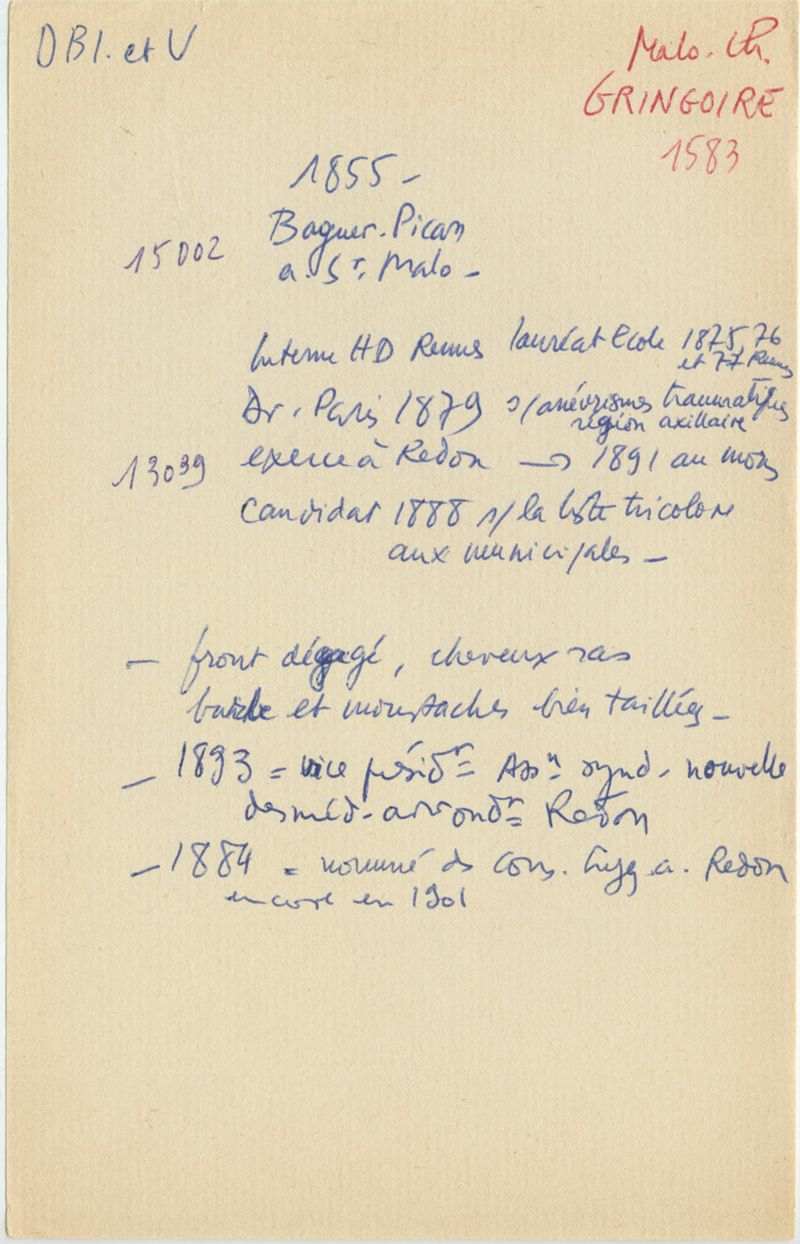 DBI. et V
Malo. Ch.
GRINGOIRE
1583
1855 -
15002
Baguer. Pican
a. St. Malo -
Interne HD Rennes lauréat Ecole 1875, 76
et 77 Rennes
Dr. Paris 1879 s/ anévrismes traumatiques
région axillaire
13039
exerce à Redon → 1891 au moins
candidat 1888 s/ la liste tricolore
aux municipales -
- front dégagé, cheveux ras
barbe et moustaches bien taillées -
- 1893 = vice présidt Assn synd. nouvelle
des méd. arrondt Redon
- 1884 = nommé ds cons. hyg a. Redon
encore en 1901